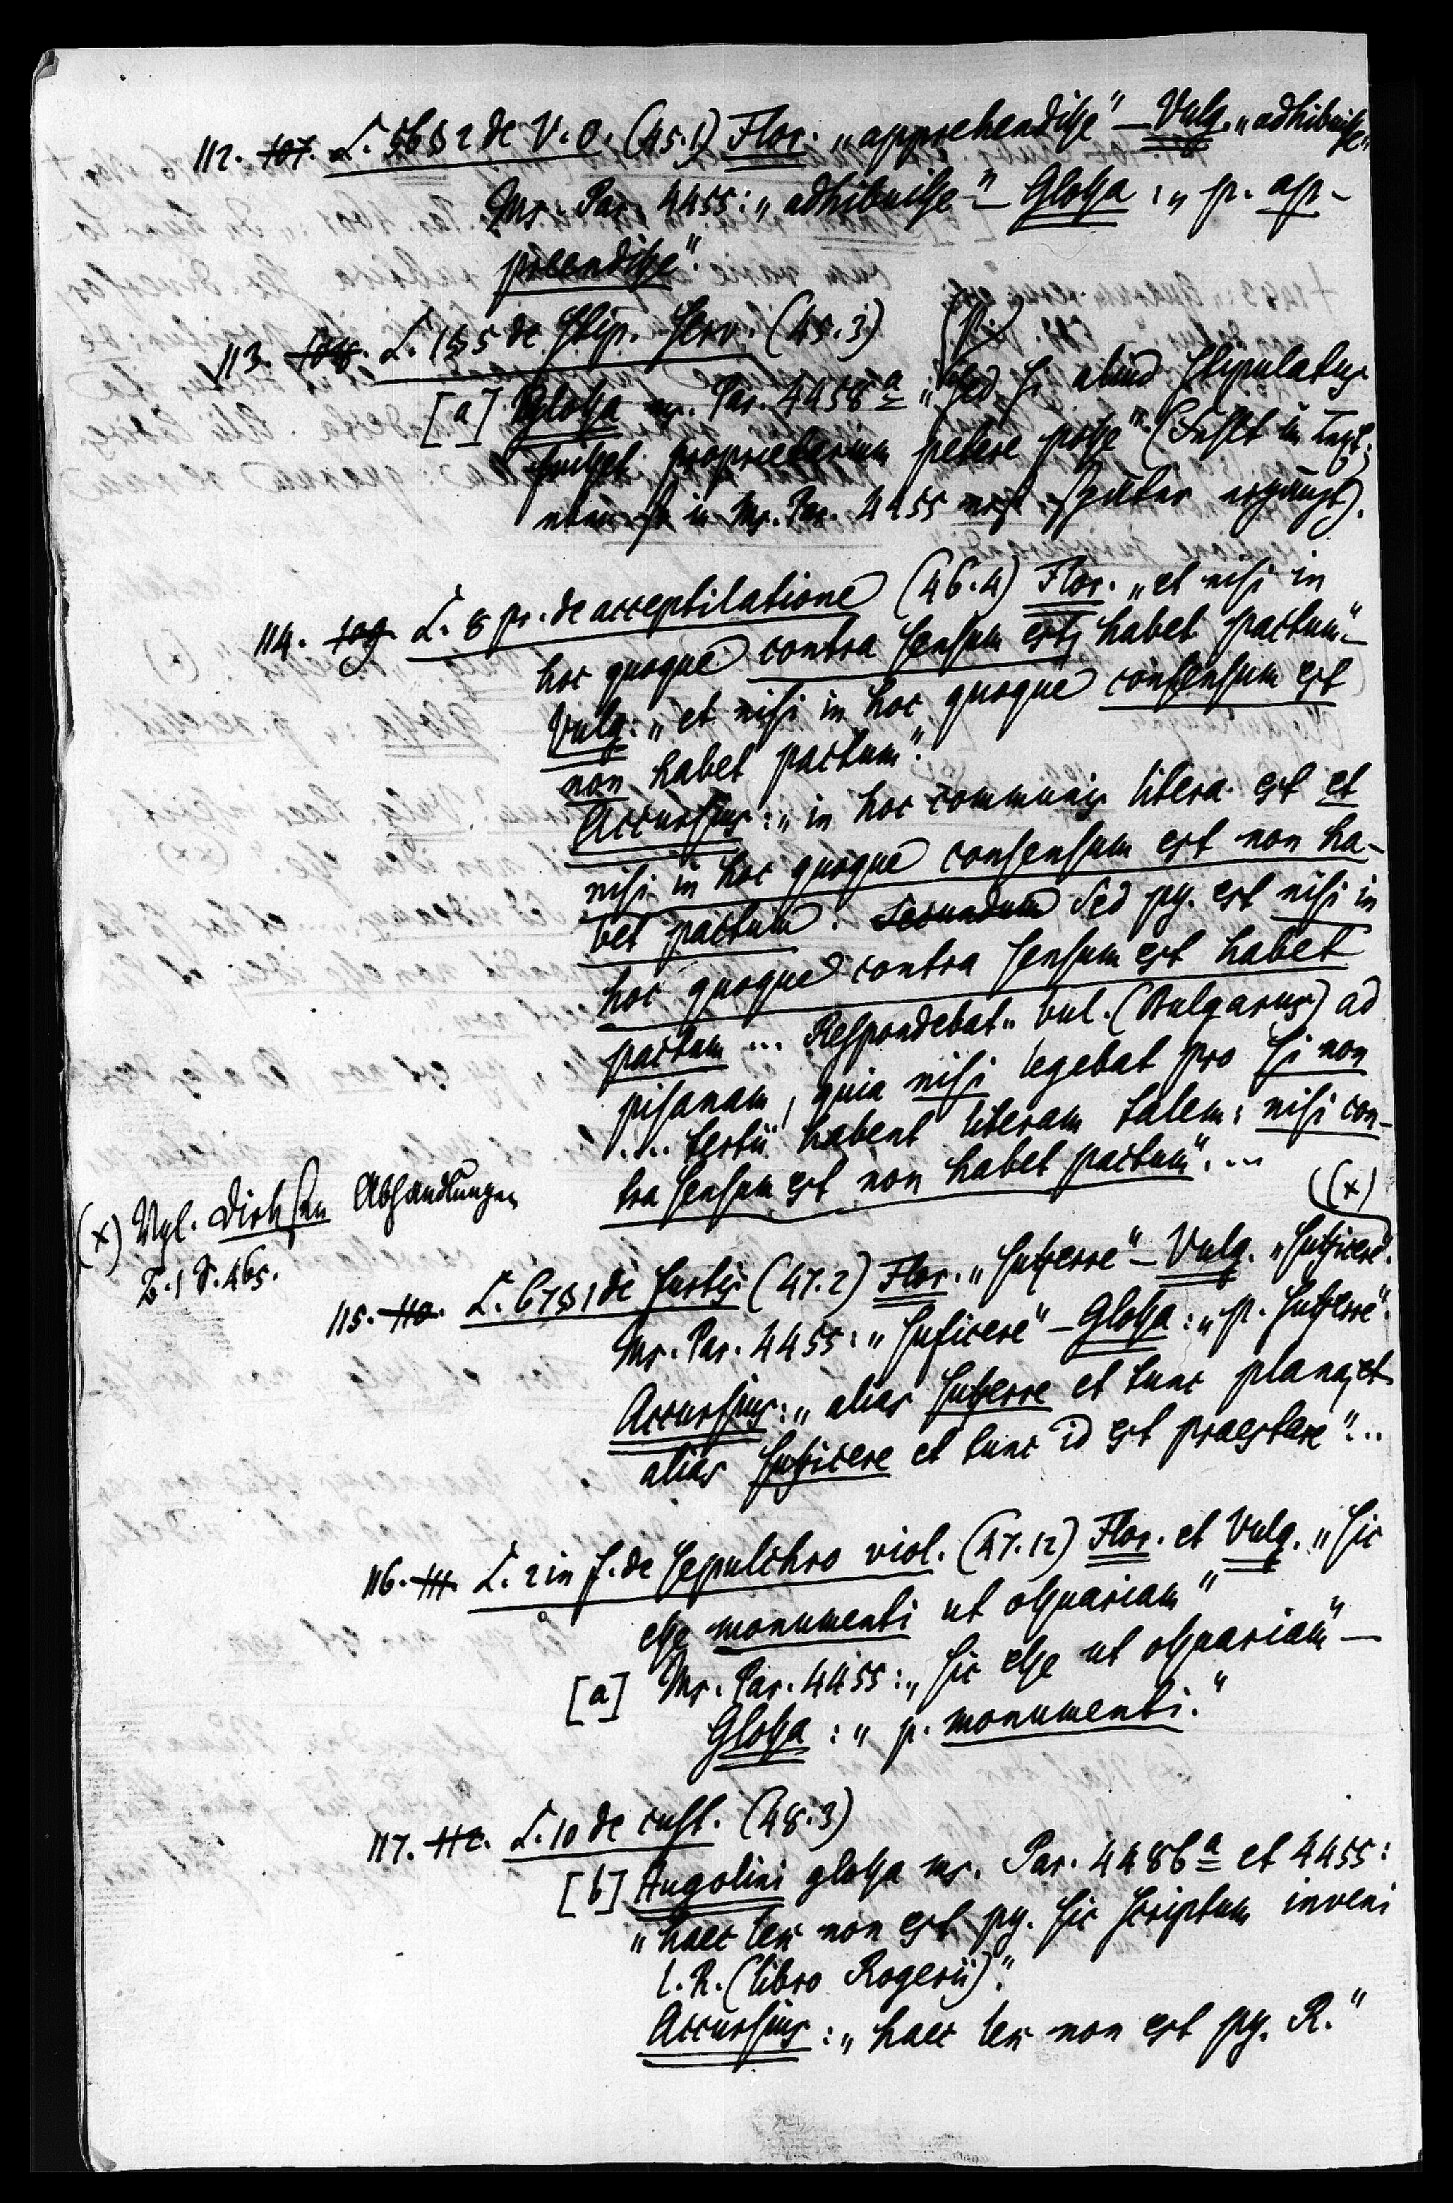 112. 107. L. 56 § 2 de V. O. (45.1) Flor. „apprehendisse" – Vulg. „adhibuisse"
Ms. Par. 4455: „adhibuisse" – Glossa: „p. ap-
prendisse".
113. 108. L. 1 § 5 de stip. serv. (45.3) (p.)
[a] Glossa ms. Par. 4458a „sed si aliud stipulatus
fuisset proprietarium petere posse" (Fehlt im Text;
in Ms. Par. 4455 erst später ergänzt).
114. 109. L. 8 pr. de acceptilatione (46.4) Flor. „et nisi in
hoc quoque contra sensum est, habet pactum" –
Vulg: „et nisi in hoc quoque consensum est
non habet pactum".
Accursius: „in hoc communis litera est et
nisi in hoc quoque consensum est non ha-
bet pactum. Secundum Sed py. est nisi in
hoc quoque contra sensum est habet
pactum ... Respondebat „vul. (Bulgarus) ad
pisanam, quia nisi legebat pro si non
... tertii habent literam talem: nisi con-
tra sensum est non habet pactum" ...
(x) Vgl. Dirksen Abhandlungen
B. 1 S. 465.
(x)
115. 110. L. 67 § 1 de furtis (47.2) Flor. „sufferre" – Vulg. „sufficere".
Ms. Par. 4455: „suficere" – Glossa: „p. sufferre".
Accursius: „alias sufferre et tunc plana, et
alias sufficere et tunc id est praestare" ...
116. 111. L. 2 in f. de sepulchro viol. (47.12) Flor. et Vulg. „sic
esse monumenti ut ossuariam"
[a] Ms. Par. 4455: „sic esse ut ossuariam" –
Glossa: „p. monumenti."
117. 112. L. 10 de cust. (48.3)
[b] Hugolini glossa ms. Par. 4486a et 4455:
„haec lex non est py. sic scriptum inveni
l. R. (libro Rogerii)".
Accursius: „haec lex non est py. R."